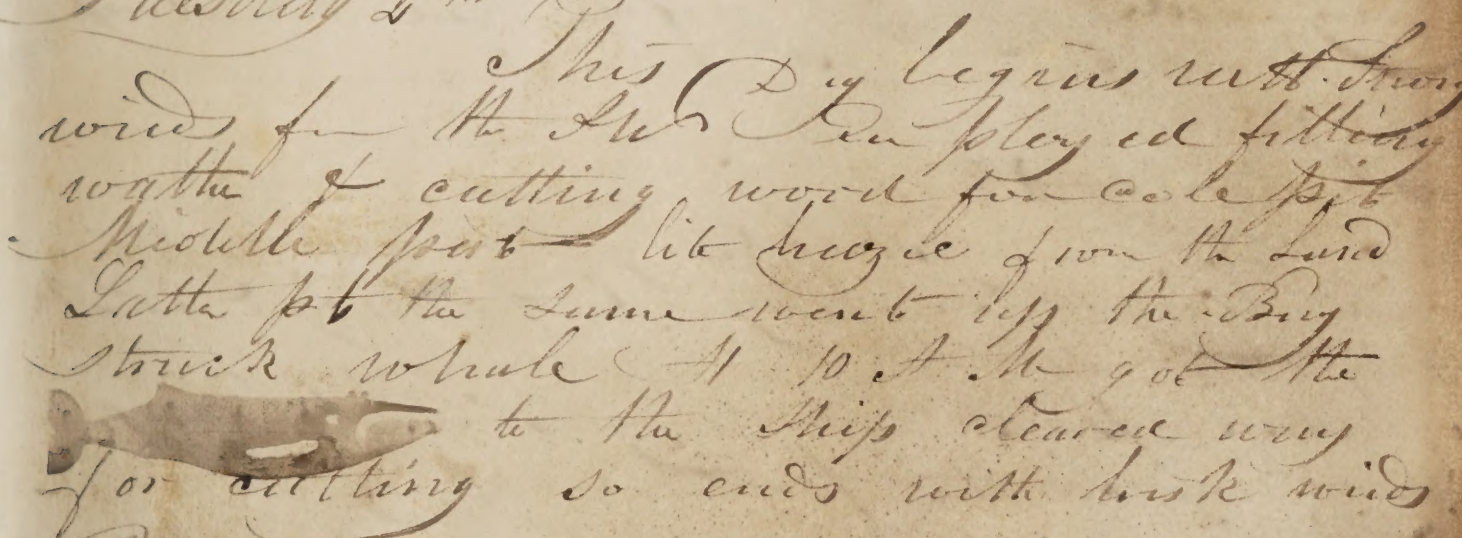 Tuesday 2
This Day begins with Strong
winds fm the SW Employed fitting
wathe & cutting wood for Cole pit
Middle part lite breeze from the Land
Latta pt the same went up the Bay
struck whale At 10 A M got the
to the Ship cleared way
for cutting so ends with brisk winds